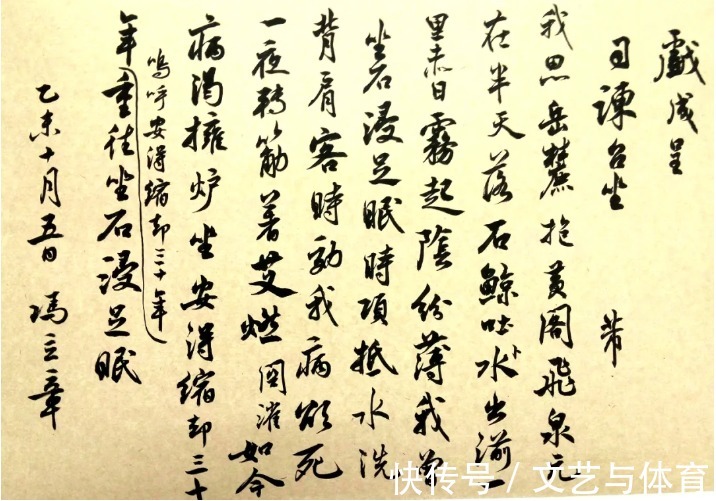 戲成呈
司諫台坐 芾
我思岳麓抱黃閣飛泉元
在半天落石鯨吐水出湔一
里赤日霧起陰紛薄我曾
坐石浸足眠時項抵水洗
背肩客時勸我病欲死
一夜轉筋著艾燃關灌如今
病渴擁爐坐安得縮却三十
嗚呼安得縮却三十年
年重往坐石浸足眠
乙未十月五日 馮立章
快传号 / 文艺与体育